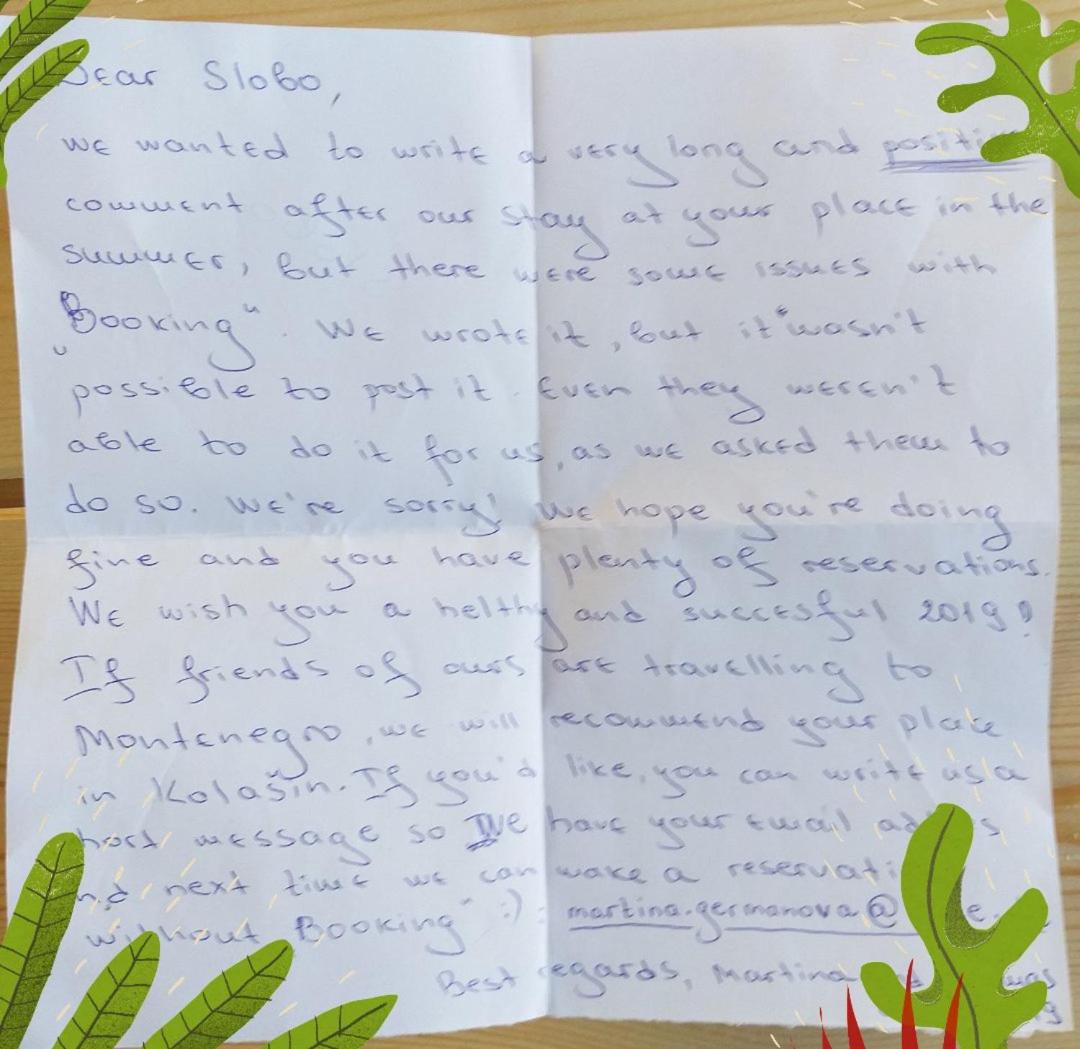 Dear Slobo,
we wanted to write a very long and
comment after our stay at your place in the
summer, but there were some issues with
„Booking“. We wrote it, but it wasn't
possible to post it. Even they weren't
able to do it for us, as we asked them to
do so. We're sorry! We hope you're doing
fine and you have plenty of reservations.
We wish you a helthy and succesful 2019!
If friends of ours are travelling to
Montenegro, we will recommend your place
in Kolašin. If you'd like, you can write us a
message so we have your email
next time we can make a
without Booking“ :) : martina.germanova@
Best regards, Martina